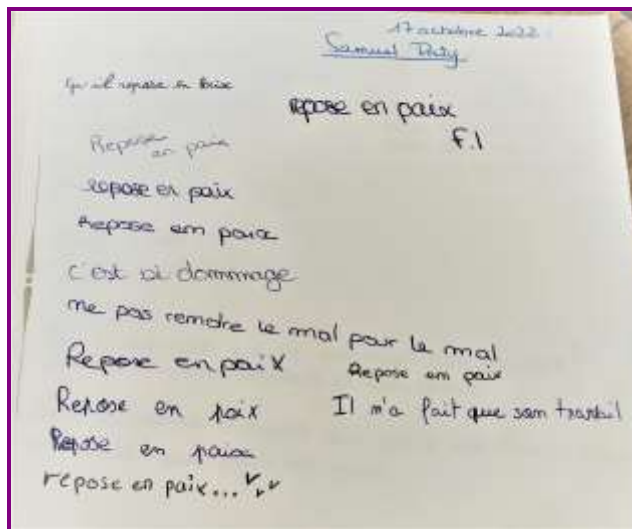 17 octobre 2022
Samuel Paty
Qu'il repose en paix
repose en paix
F.I
Repose en paix
repose en paix
Repose em paix
c'est si dommage
me pas remdre le mal pour le mal
Repose en paix
Repose em paix
Repose en paix
Il n'a fait que som travail
Repose en paix
repose en paix...